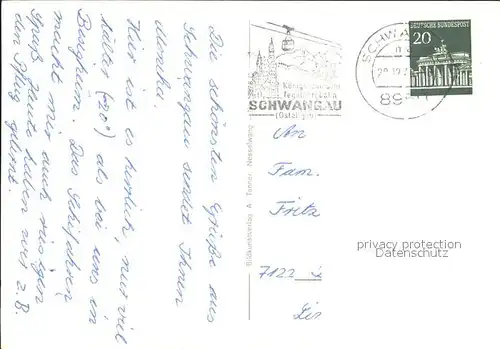 Die schönsten Grüße aus
Schwangau sendet Ihnen
Monika.
Hier ist es herrlich, nur viel
kälter (-20°) als bei uns in
Bergheim. Das Schifahren
macht mir auch riesigen
Spaß. Heute haben wir z.B.
den Pflug gelernt.
Bildkunstverlag A. Tanner, Nesselwang
SCHWANGAU
(Ostallgäu)
SCHWAN
89
DEUTSCHE BUNDESPOST
20
An
Fam.
Fritz
7122
privacy protection
Datenschutz